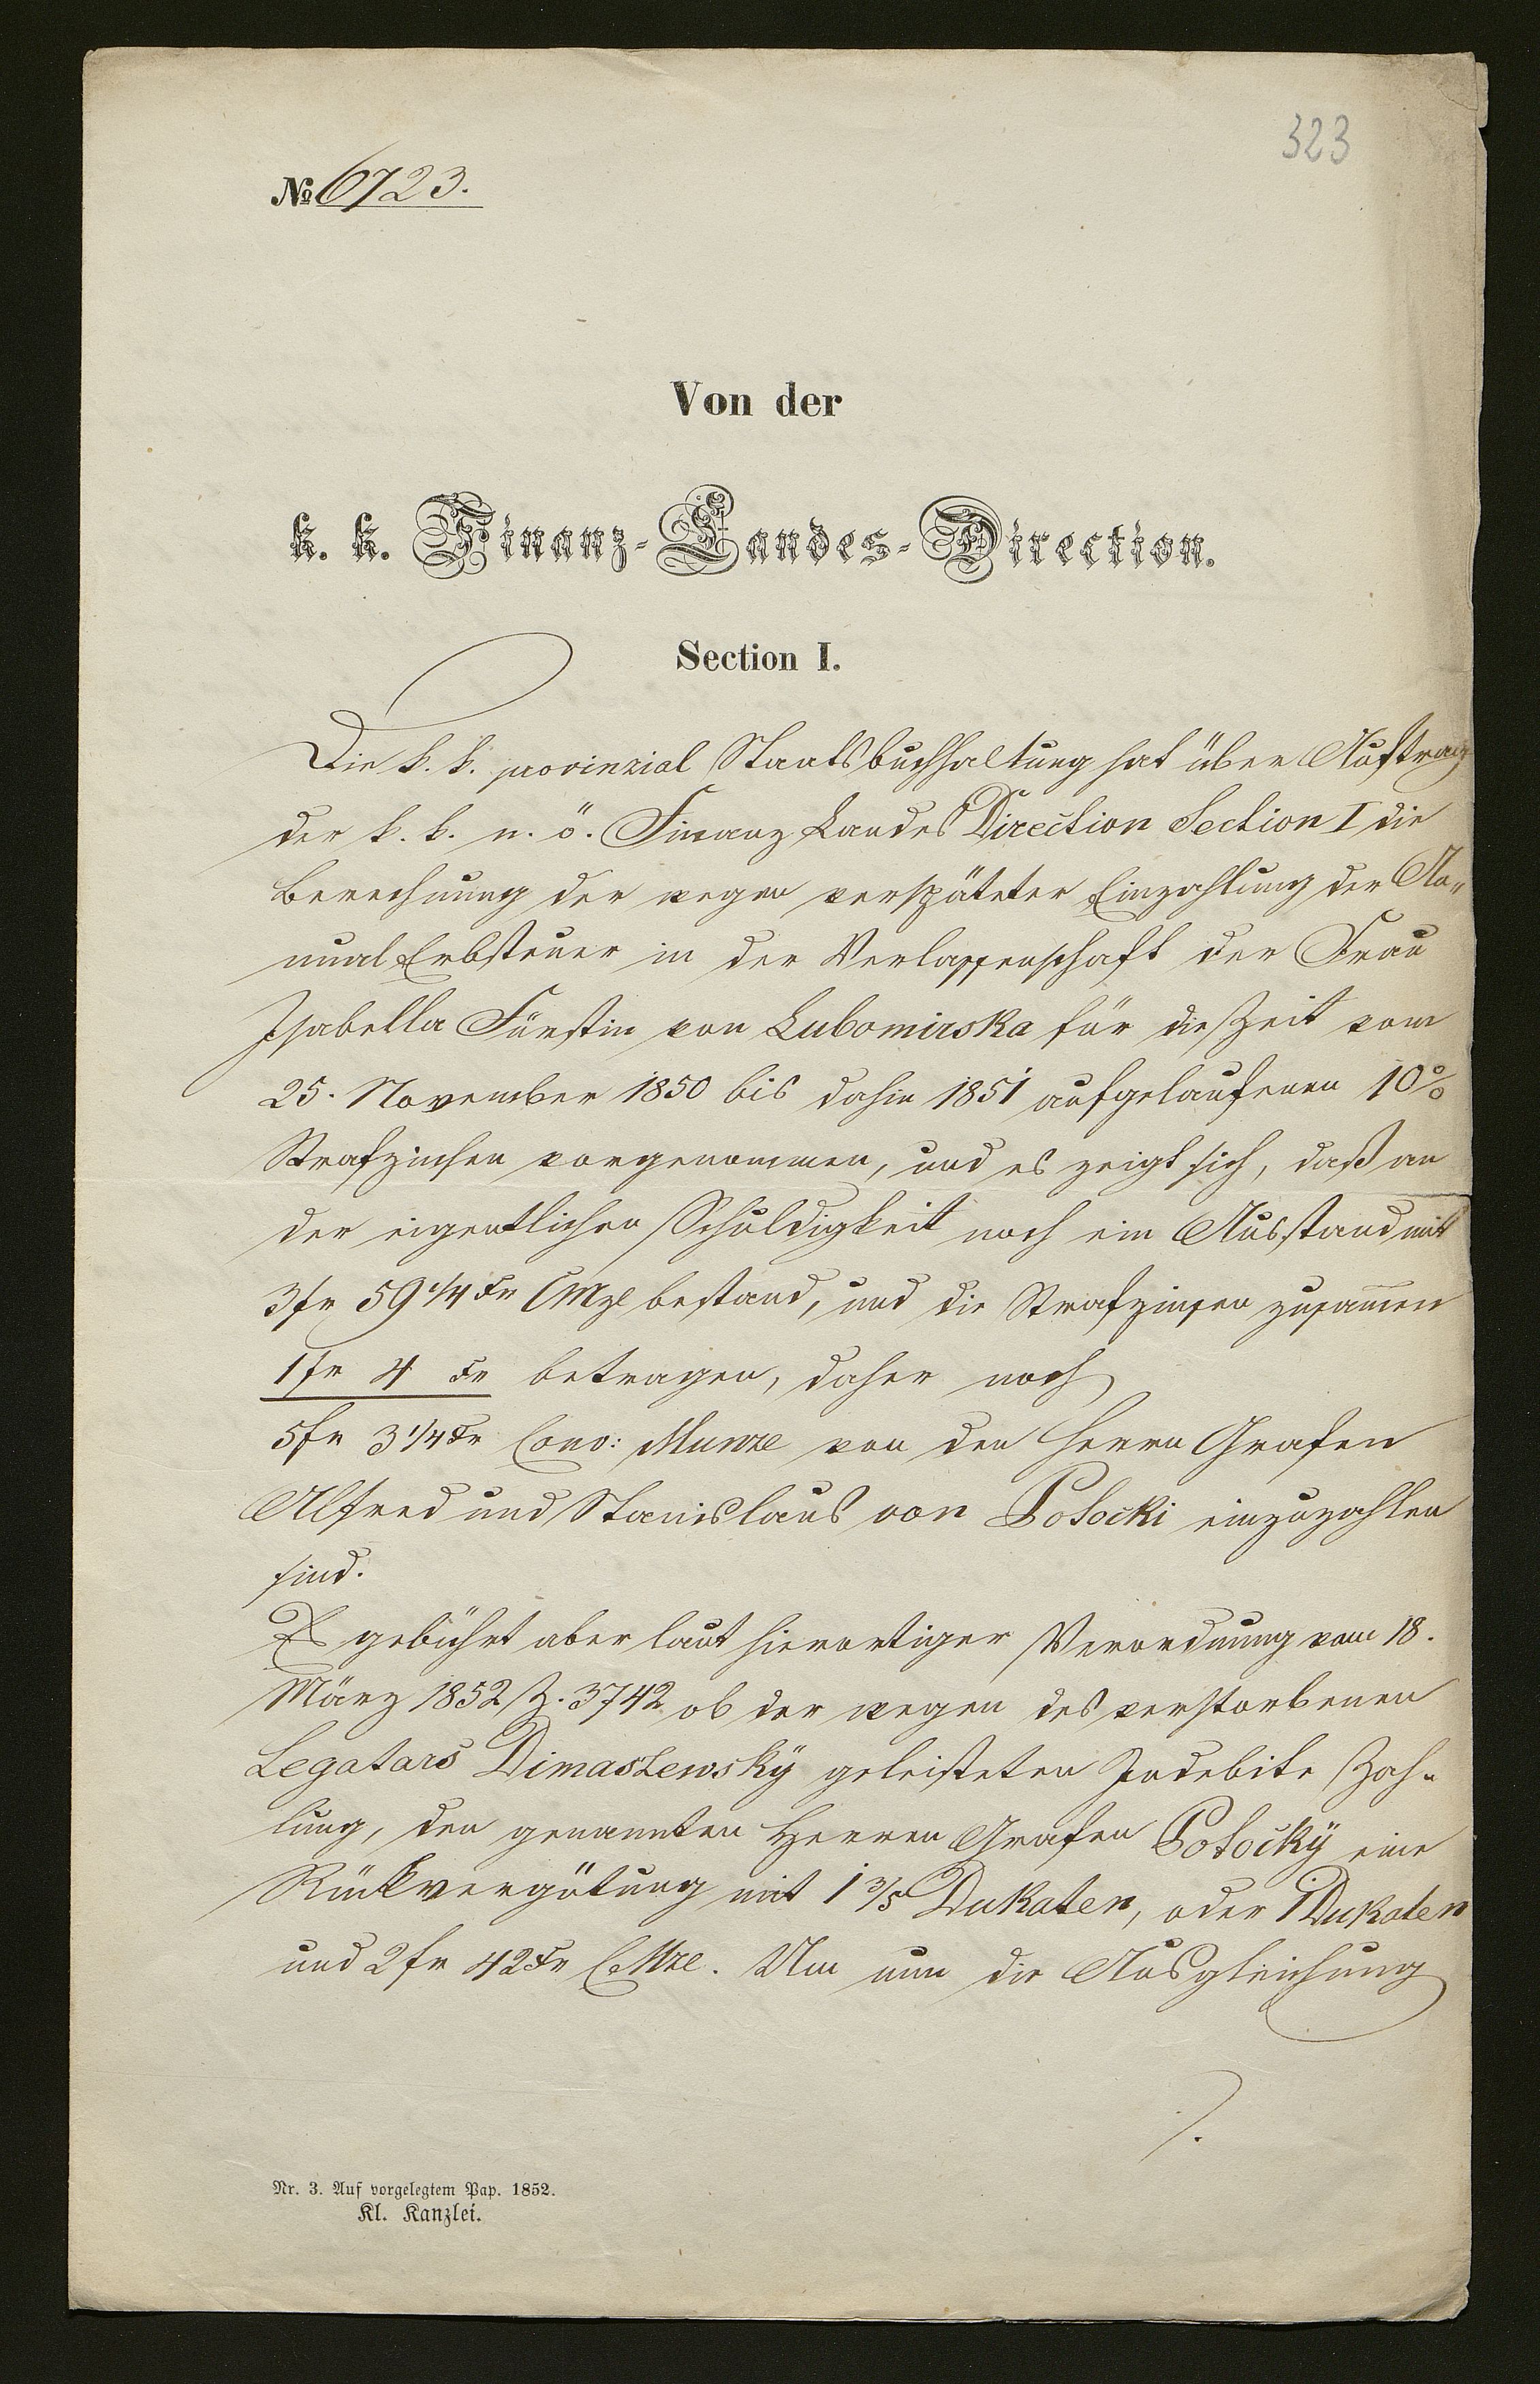 323
№ 6723.
Von der
k. k. Finanz-Landes-Direction.
Section I.
Die k. k. provinzial Staatsbuchhaltung hat über Auftrag
der k. k. n. ö. Finanz Landes Direction Section I die
Berechnung der wegen verspäteter Einzahlung der An„
nual Erbsteuer in der Verlassenschaft der Frau
Isabella Fürstin von Lubomirska für die Zeit vom
25. November 1850 bis dahin 1851 aufgelaufenen 10%
Strafzinsen vorgenommen, und es zeigt sich, daß an
der eigentlichen Schuldigkeit noch ein Ausstand mit
3 fr 59 1/4 xr CMze bestand, und die Strafzinsen zusam̅en
1 fr 4 xr betragen, daher noch
5 fr 3 1/4 xr Conv: Munze von den Herrn Grafen
Alfred und Stanislaus von Potocki einzuzahlen
sind.
Es gebührt aber laut hierortiger Verordnung vom 18.
März 1852 Z. 3742 ob der wegen des verstorbenen
Legatars Dimaszewsky geleisteten Indebite Zah-
lung, den genannten Herren Grafen Potocky eine
Rückvergütung mit 1 3/5 Dukaten, oder 1 Dukaten
und 2 fr 42 xr CMze. Um nun die Ausgleichung
./.
Nr. 3. Auf vorgelegtem Pap. 1852.
Kl. Kanzlei.